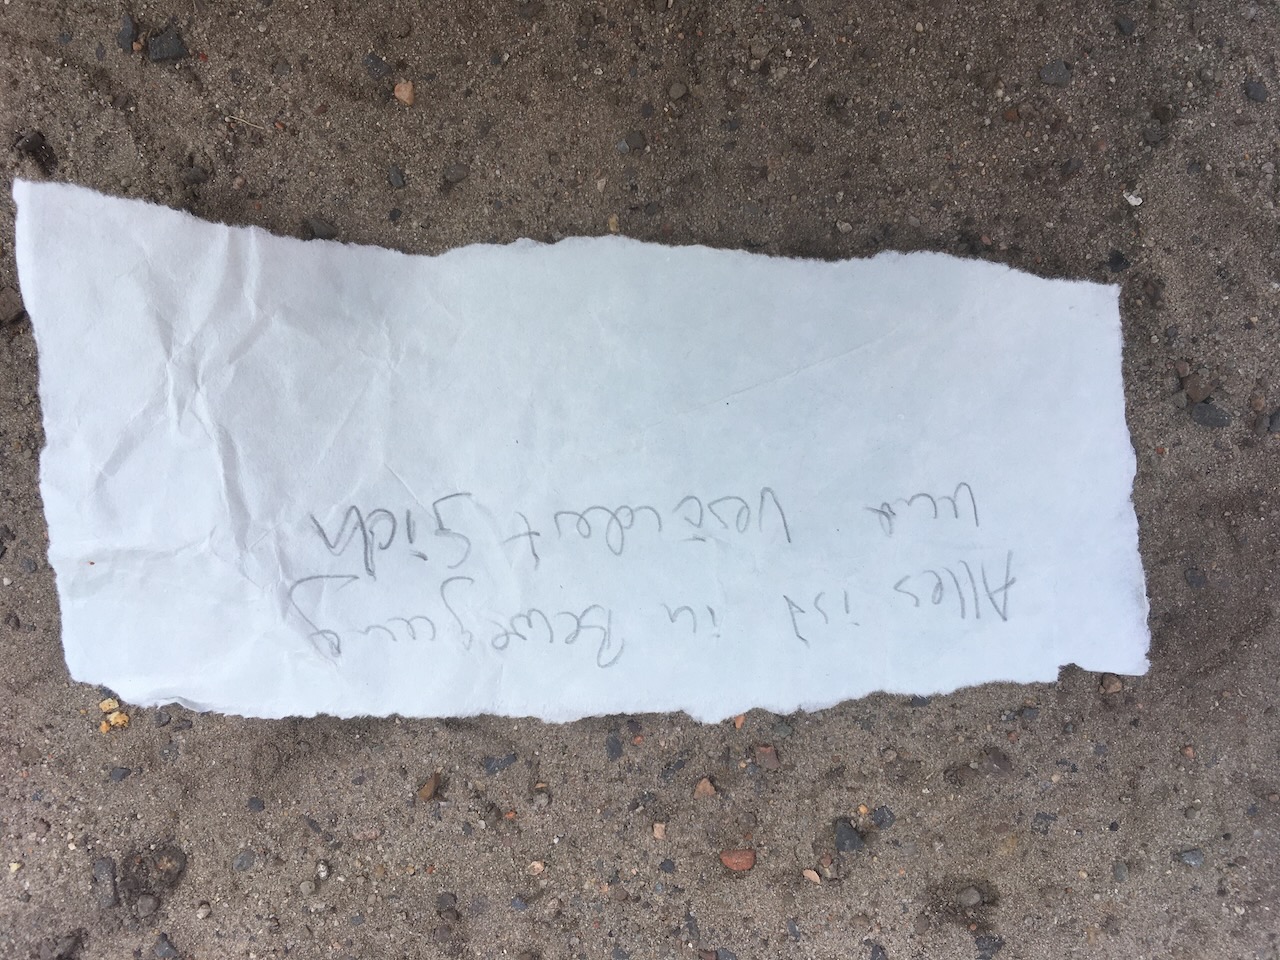 Alles ist in Bewegung
und Verändert Sich